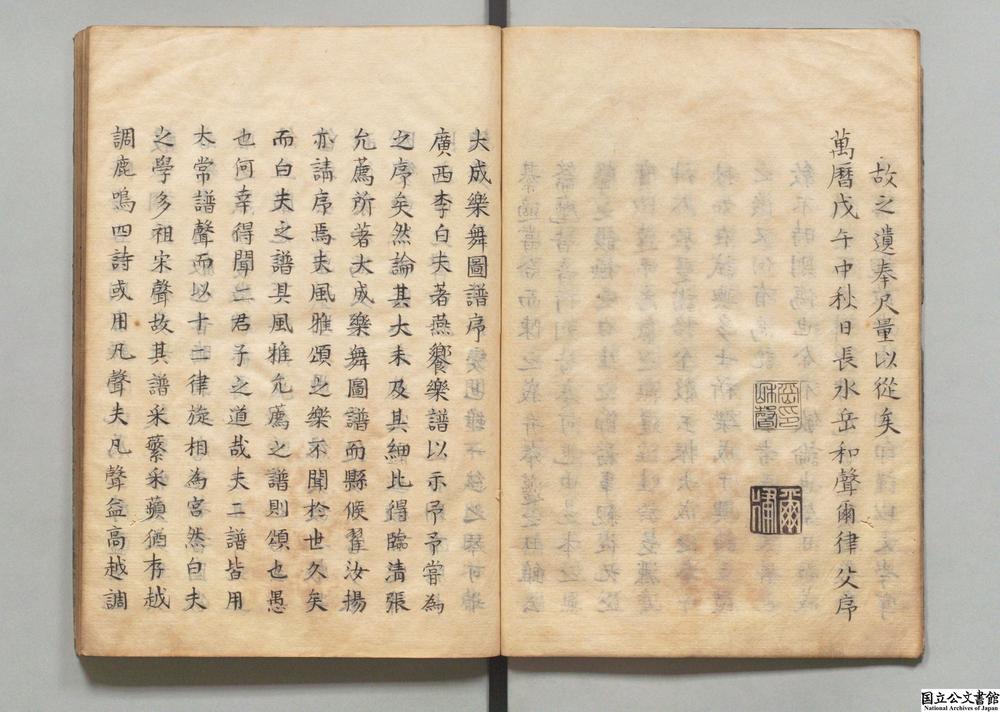 故之遺奉尺量以從矣
萬曆戊午中秋日長水岳和聲爾律父序
大成樂舞圖譜序
廣西李白夫著燕饗樂譜以示予予嘗為
之序矣然論其大未及其細比得臨清張
允薦所著大成樂舞圖譜而縣候翟汝揚
亦請序焉夫風雅頌之樂不聞於世久矣
而白夫之譜具風雅允薦之譜則頌也愚
也何幸得聞二君子之道哉夫二譜皆用
太常譜聲而以十二律旋相為宮然白夫
之學多祖宋聲故其譜采蘩采蘋猶存越
調鹿鳴四詩或用凡聲夫凡聲益高越調
国立公文書館
National Archives of Japan